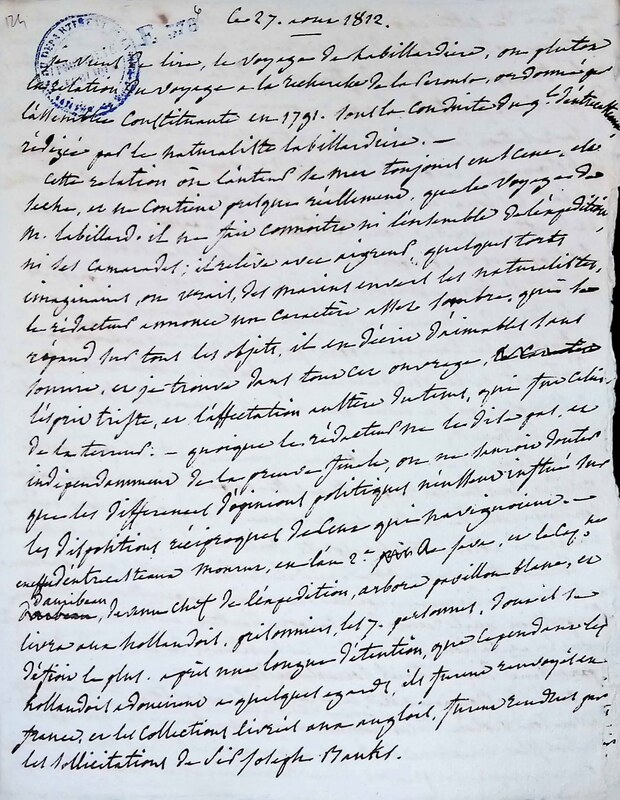 124
E 376
ce 27. aout 1812.
je viens de lire, le voyage de labillardiere, ou plutot
la relation du voyage a la recherche de la Perouse, ordonné par
l'assemblée Constituante en 1791. sous la conduite du gl. d'entrecasteaux
rédigée par le naturaliste labillardiere. —
cette relation ou l'auteur se met toujours en scene, est
seche, et ne contient presque réellement, que le voyage de
m. labillard. il ne fait connoitre ni l'ensemble de l'expédition,
ni ses camarades; il releve avec aigreur, quelques torts
imaginaires, ou vrais, des marins envers les naturalistes,
le rédacteur annonce un caractère assez sombre, qui se
répand sur tous les objets, il en décrit d'aimables sans
sourire, et je trouve dans tout cet ouvrage,
l'esprit triste, et l'affectation austère du tems, qui fut celui
de la terreur. — quoique le rédacteur ne le dise pas, et
indépendamment de la preuve finale, on ne sauroit douter
que les differences d'opinions politiques n'eussent influé sur
les dispositions réciproques de ceux qui naviguoient. —
en effet dentrecasteaux mourut, en l'an 2e. a Java, et le Capne.
dauribeau, devenu chef de l'expédition, arbora pavillon blanc, et
livra aux hollandois, prisonniers, les 7. personnes, dont il se
défioit le plus. après une longue détention, que cependant les
hollandois adoucirent a quelques egards, ils furent renvoyés en
france, et les collections livrées aux anglois, furent rendues par
les sollicitations de Sir Joseph Banks.